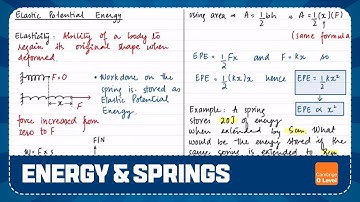 Elastic Potential Energy
Elasticity: Ability of a body to
regain its original shape when
deformed.
F=0
x
F
• Workdone on
the spring is stored as
Elastic Potential
Energy.
force increased from
zero to F
W= F x s
F/N
Using area = A = 1/2 bh is A = 1/2 (x)(F)
(same formula
EPE = 1/2 Fx and F = kx so
EPE = 1/2 (kx)x hence EPE = 1/2 kx²
EPE ∝ x²
Example: A spring
stores 20J of energy
when extended by 5cm. What
would be the energy stored if the
same spring is extended to
ENERGY & SPRINGS
Cambridge
O Level